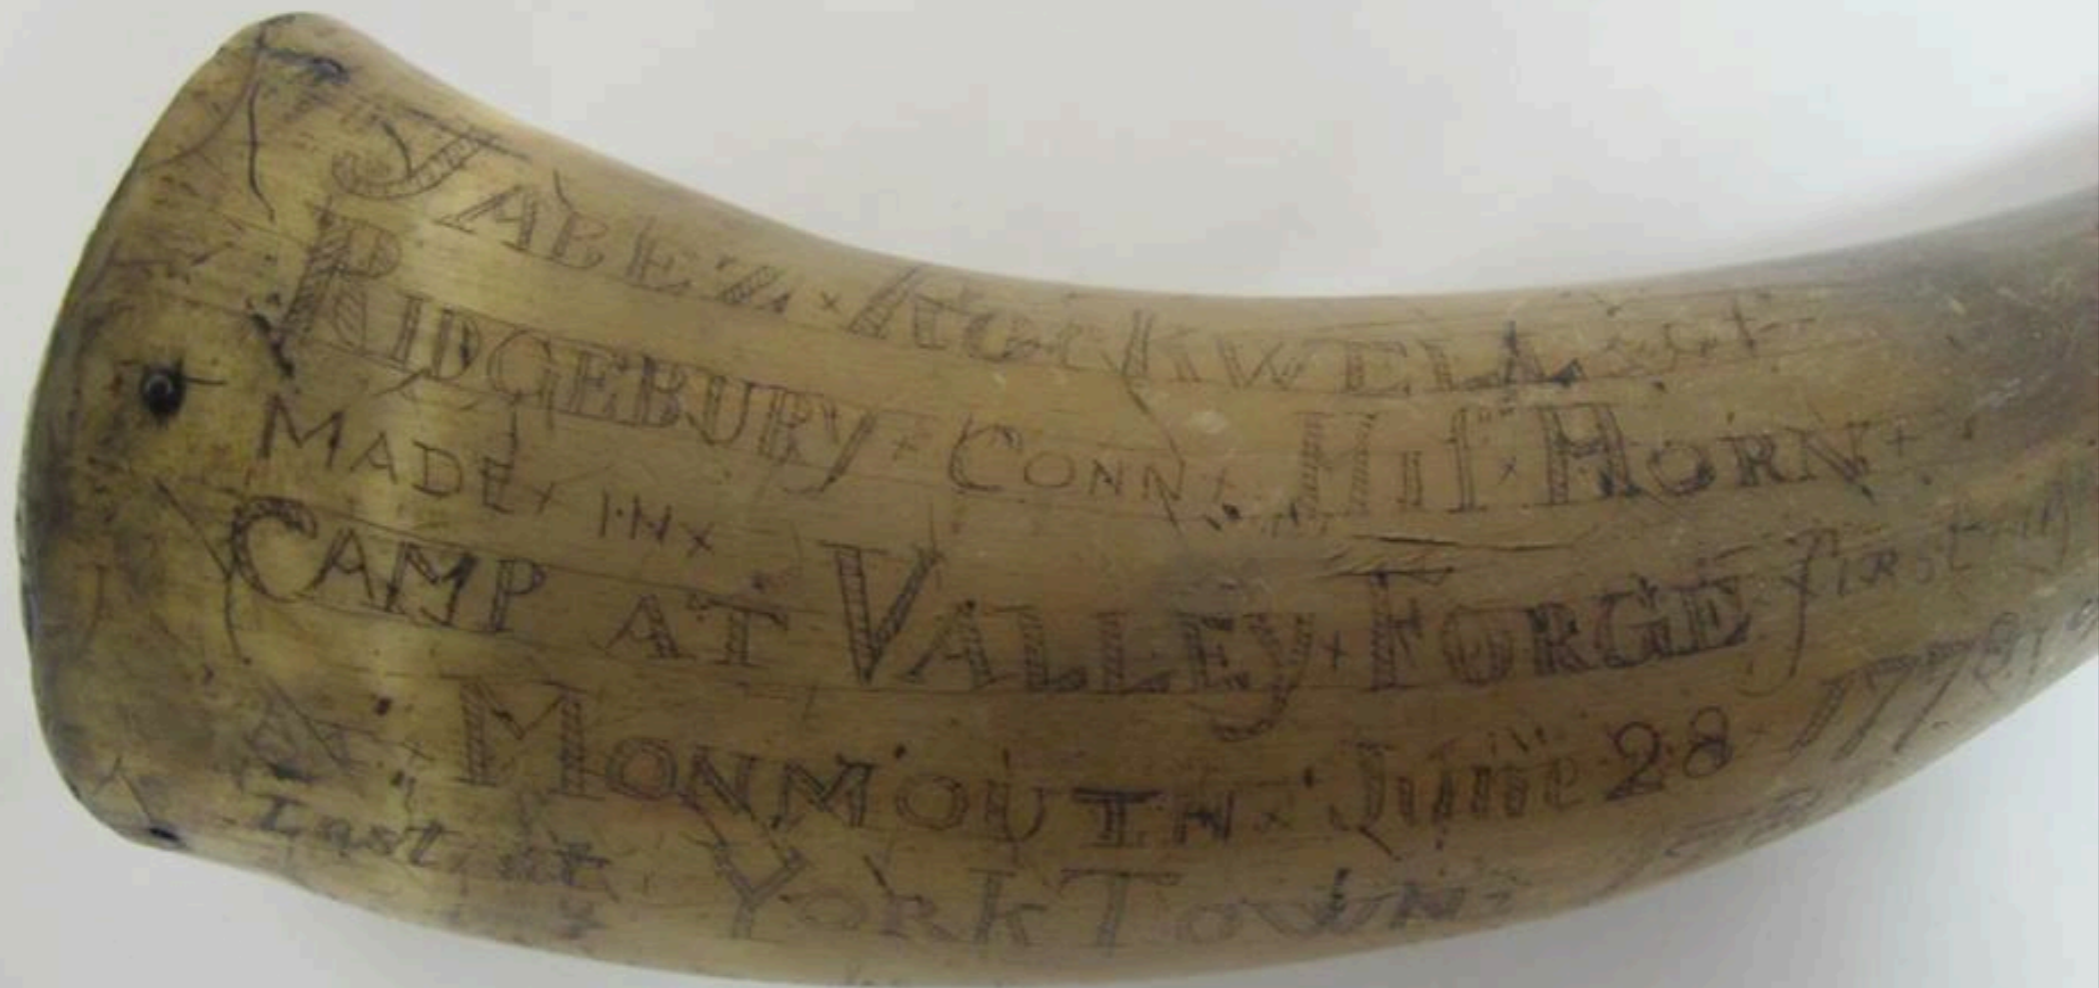 JABEZ × RockWELL
RIDGEBURY + CONN × Hiſ × HORN +
MADE × IN ×
CAMP AT VALLEY + FORGE first
AT × MONMOUTH × June 28 1778
Last at YORK TOWN